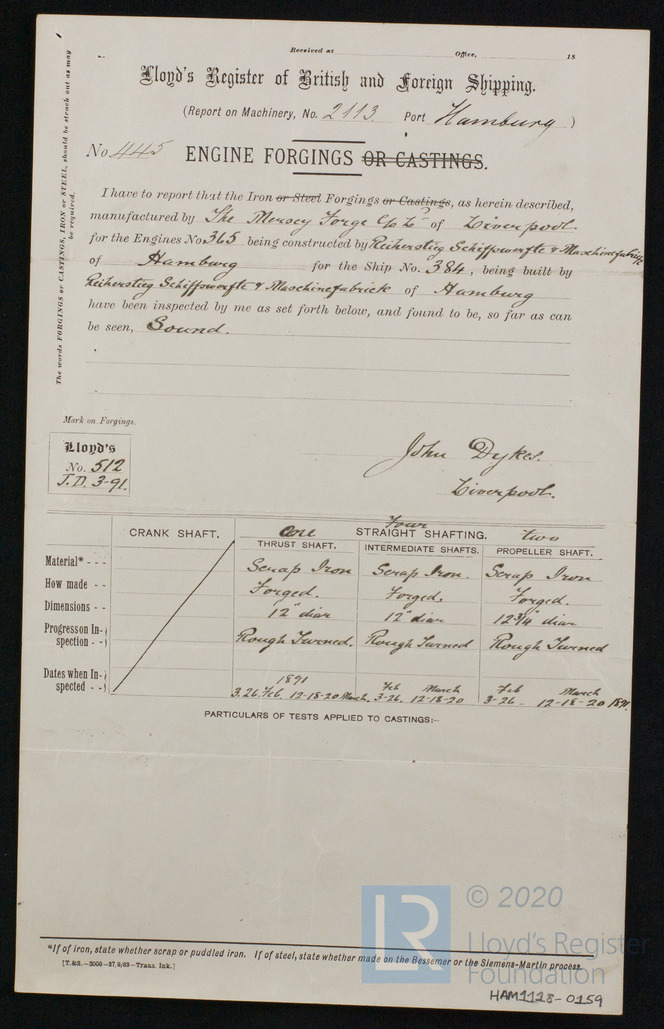 Received at Office, 18
Lloyd's Register of British and Foreign Shipping.
(Report on Machinery, No. 2113 Port Hamburg )
No 445 ENGINE FORGINGS OR CASTINGS.
The words FORGINGS or CASTINGS, IRON or STEEL, should be struck out as may
be required.
I have to report that the Iron or Steel Forgings or Castings, as herein described,
manufactured by The Mersey Forge Co Ld of Liverpool
for the Engines No 365 being constructed by Reiherstieg Schiffswerfte & Maschinefabrick
of Hamburg for the Ship No. 384, being built by
Reiherstieg Schiffswerfte & Maschinefabrick of Hamburg
have been inspected by me as set forth below, and found to be, so far as can
be seen, Sound.
Mark on Forgings.
Lloyd's
No. 512
J.D. 3-91.
John Dykes.
Liverpool.
CRANK SHAFT. One Four STRAIGHT SHAFTING. two
THRUST SHAFT. INTERMEDIATE SHAFTS. PROPELLER SHAFT.
Material* - - - Scrap Iron Scrap Iron. Scrap Iron
How made - - Forged. Forged. Forged.
Dimensions - - 12" diar 12" diar 12 3/4" diar
Progress on In-
spection - - Rough Turned. Rough Turned Rough Turned
Dates when In-
spected - - 1891 3.26 Feb. 12-18-20 March. Feb 3-26. March 12-18-20 Feb 3-26 March 12-18-20 1891.
PARTICULARS OF TESTS APPLIED TO CASTINGS:—
*If of iron, state whether scrap or puddled iron. If of steel, state whether made on the Bessemer or the Siemens-Martin process.
[T.&S.—2000—27,8/89—Trans. Ink.]
LR
© 2020
Lloyd's Register
Foundation
HAM1128-0159